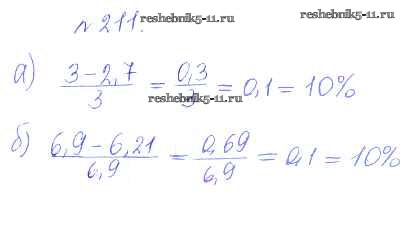 reshebnik5-11.ru
reshebnik5-11.ru
№ 211.
а) (3 − 2,7)/3 = 0,3/3 = 0,1 = 10%
reshebnik5-11.ru
б) (6,9 − 6,21)/6,9 = 0,69/6,9 = 0,1 = 10%